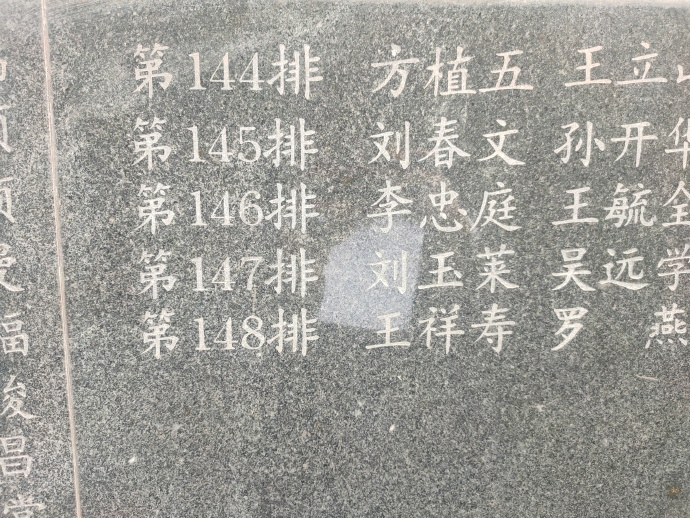 第144排 方植五 王立山
第145排 刘春文 孙开华
第146排 李忠庭 王毓全
第147排 刘玉莱 吴远学
第148排 王祥寿 罗燕
福
俊
昌